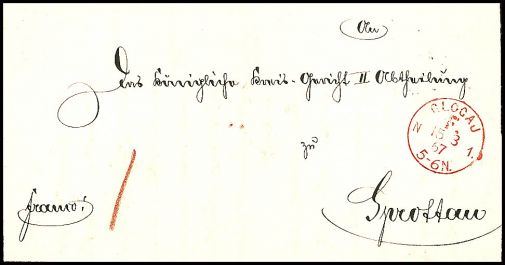 An
Das Königliche Kreis-Gericht II Abtheilung
GLOGAU
N 15 3 1.
67
5-6N.
zu
franco!
Sprottau